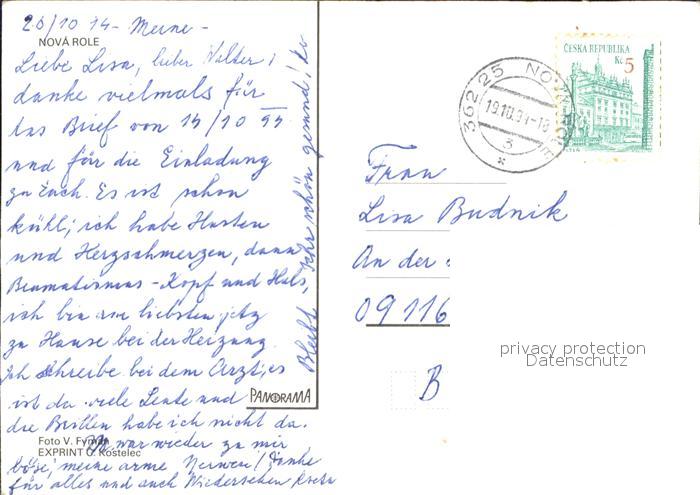 20/10 94 - Meine -
NOVÁ ROLE
Liebe Lisa, lieber Walter!
danke vielmals für
das Brief von 14/10 94
und für die Einladung
zu Euch. Es ist schon
kühl; ich habe Husten
und Herzschmerzen, dann
Reumatismus - Kopf und Hals,
ich bin am liebsten jetz
zu Hause bei der Heizung.
Ich schreibe bei dem Arzt; es
ist da viele Leute und
die Brillen habe ich nicht da.
war wieder zu mir
böse, meine arme Nerven! Danke
für alles und auch Wiedersehen
Bleibt sehr schön gesund!
Foto V. Fyman
EXPRINT O. Kostelec
PANORAMA
362 25 NOVÁ ROLE
19.10.94-10
3
*
ČESKÁ REPUBLIKA
Kč 5
Frau
Lisa Budnik
An der
09116
B
privacy protection
Datenschutz